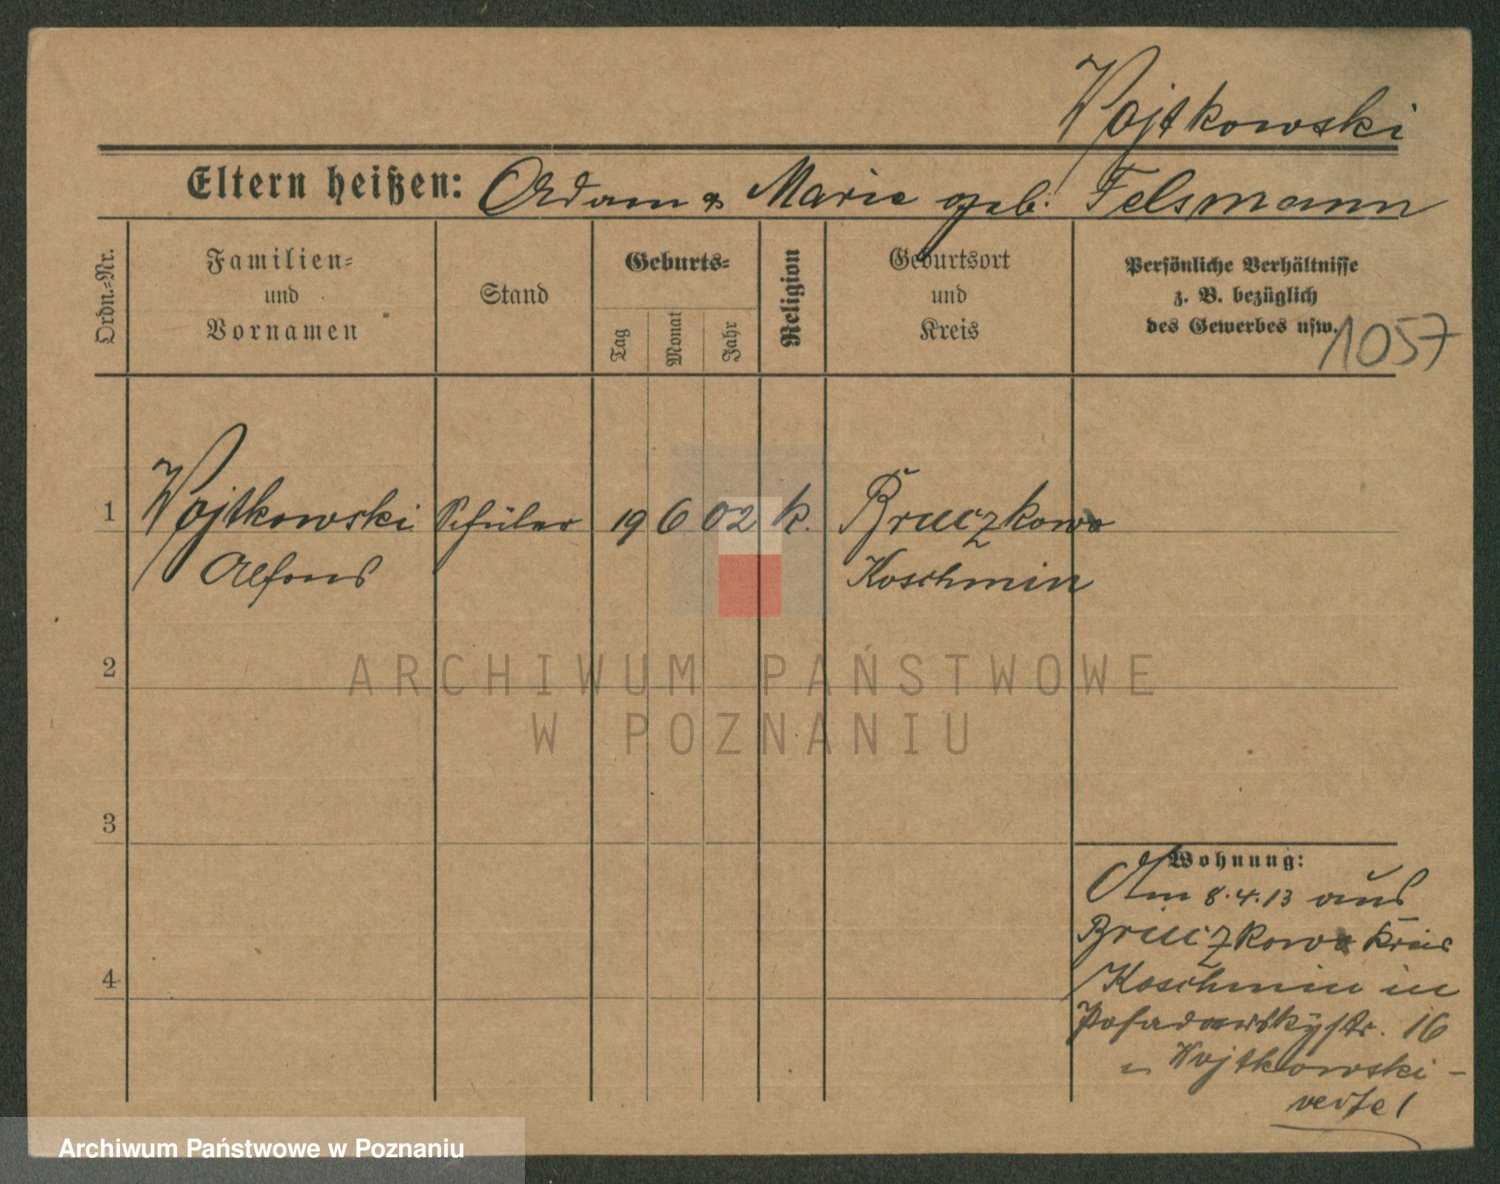 Wojtkowski
Eltern heißen: Adam & Marie geb. Felsmann
Ordn.-Nr.
Familien-
und
Vornamen
Stand
Geburts-
Tag
Monat
Jahr
Religion
Geburtsort
und
Kreis
Persönliche Verhältnisse
z. B. bezüglich
des Gewerbes usw.
1057
1 Wojtkowski Schüler 19 6 02 k. Bruczkowo
Alfons Koschmin
2
3
4
Wohnung:
Am 8.4.13 aus
Bruczkowo Kreis
Koschmin in
Posadowskystr. 16
Wojtkowski-
ARCHIWUM PAŃSTWOWE
W POZNANIU
Archiwum Państwowe w Poznaniu